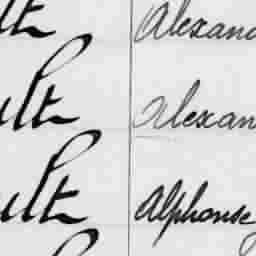 ult Alexand
ult Alexan
ult Alphonse